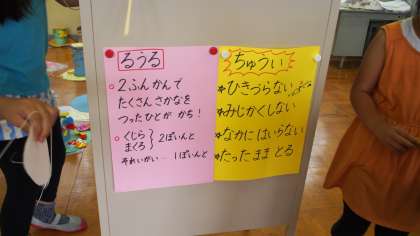 るうる
○2ふんかんで
たくさんさかなを
つったひとが かち!
○くじら
まぐろ
2ぽいんと
それいがい… 1ぽいんと
ちゅうい
*ひきづらない
*みじかくしない
*なかに はいらない
*たったまま とる